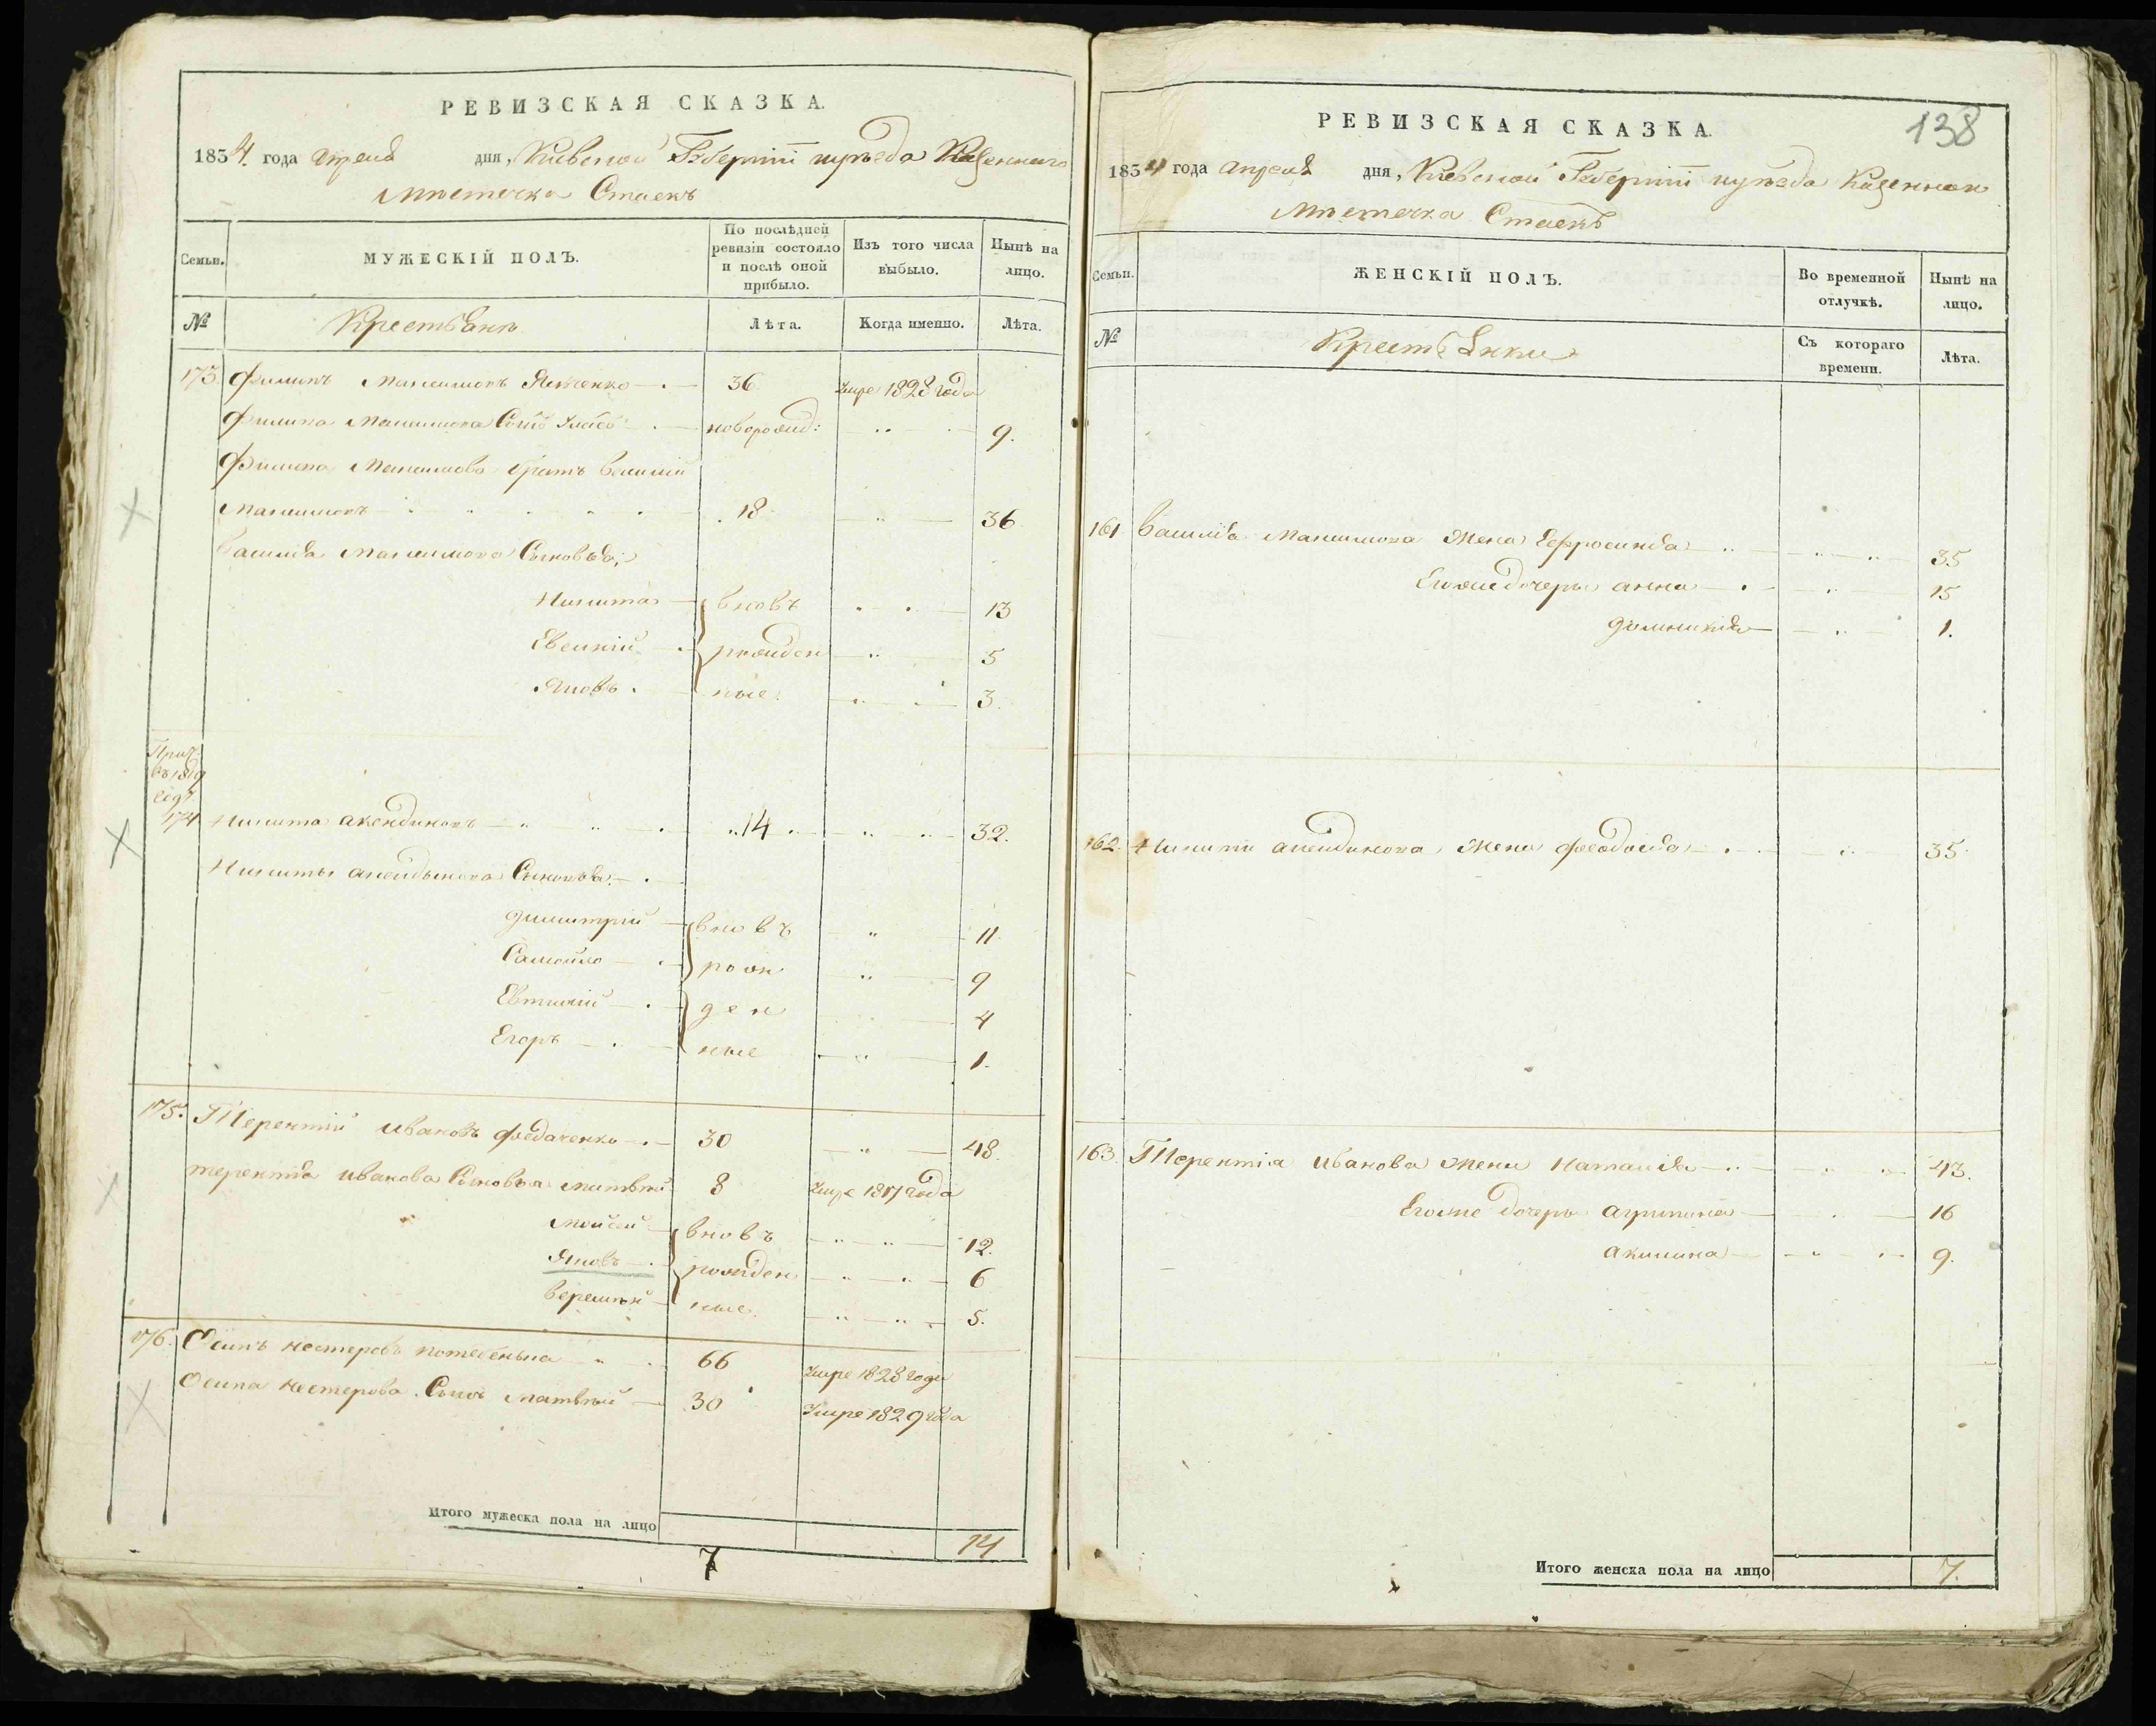 РЕВИЗСКАЯ СКАЗКА.
1834. года апреля дня, Киевской Губернiи иуѣзда Казеннаго
Мѣстечка Стаекъ
Семьи.
МУЖЕСКIЙ ПОЛЪ.
По послѣдней ревизiи состояло и послѣ оной прибыло.
Изъ того числа выбыло.
Нынѣ на лицо.
№
Крестьянъ
Лѣта.
Когда именно.
Лѣта.
173. Филипъ Максимовъ 36 умре 1828 года
Филипа Максимова Сынъ новорожд: 9.
Филипа Максимова братъ василiй
Максимовъ 18 36
василiя Максимова Сыновья:
Никита вновь 13
Евсикiй рожден 5
Яковъ ные. 3.
174 Никита акендиновъ 14 32.
Никиты акендинова Сыновья.
димитрiй вновь 11
Самойло рож 9
Евтихiй ден 4
Егоръ ные 1.
175. Терентiй ивановъ федаченко 30 48.
терентiя иванова Сыновья матвѣй 8 умре 1817 года
мойсей вновь 12.
Яковъ рожден 6
веремѣй ные. 5.
176. Осипъ нестеровъ потебенька 66 умре 1828 года
Осипа нестерова Сынъ матвѣй 30 Умре 1829 года
Итого мужеска пола на лицо 14
7
138
РЕВИЗСКАЯ СКАЗКА.
1834 года апреля дня, Киевской Губернiи иуѣзда Казеннаго
Мѣстечка Стаекъ
Семьи.
ЖЕНСКIЙ ПОЛЪ.
Во временной отлучкѣ.
Нынѣ на лицо.
№
Крестьянки
Съ котораго времени.
Лѣта.
161 василiя Максимова жена Еефросинiя 35
Еиожедочеры анна 15
домникiя 1.
162. Никиты акендинова жена феодосiя 35
163. Терентiя иванова жена наталiя 43.
Егоже дочеры агрипина 16
акилина 9.
Итого женска пола на лицо 7.